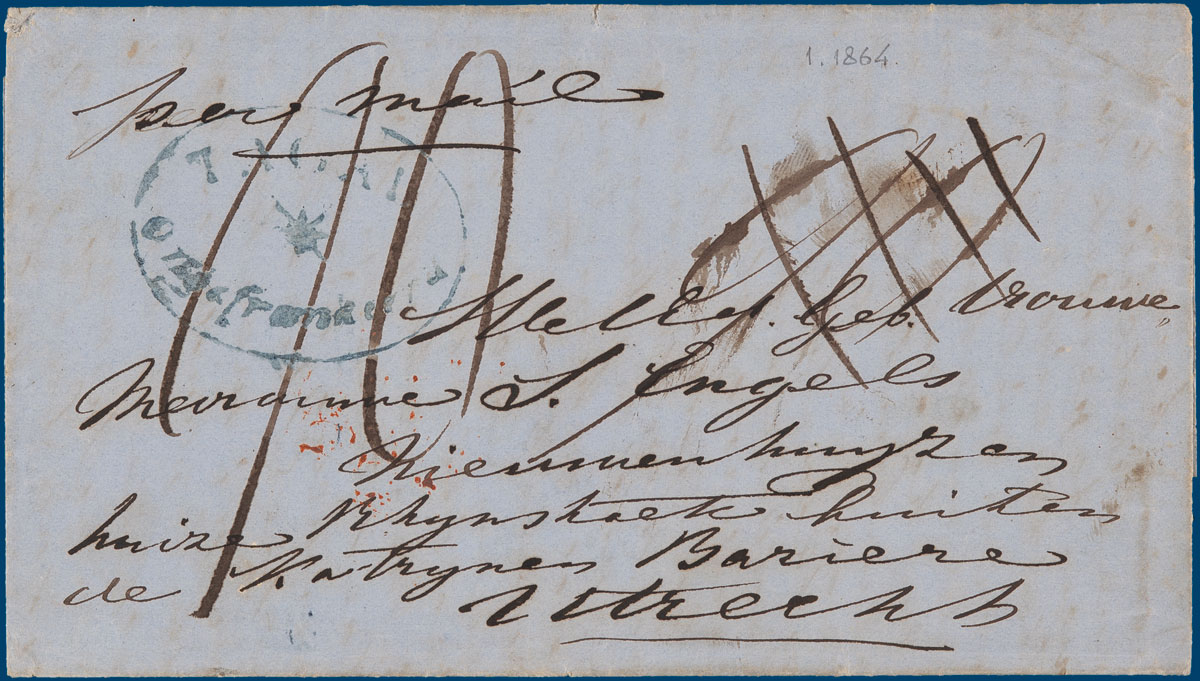 1. 1864.
per mail
Ongefrankeerd
WelEd. Geb. Vrouwe
Mevrouwe S. Engels
Nieuwenhuyzen
huize Rhynstoek buiten
de Katrynen Bariere
Utrecht